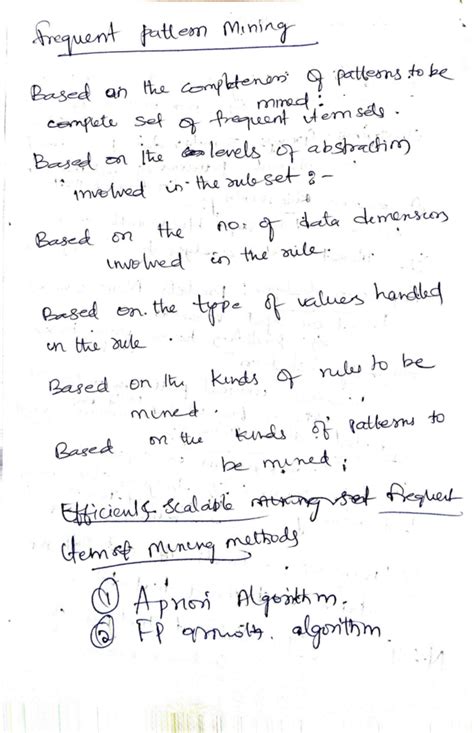 frequent pattern Mining
Based on the completeness of patterns to be
mined :
complete set of frequent itemsets.
Based on the levels of abstraction
involved in the rule set :-
Based on the no. of data dimensions
involved in the rule.
Based on the type of values handled
in the rule
Based on the kinds of rules to be
mined.
Based on the kinds of patterns to
be mined ;
Efficient & Scalable mining set frequent
Itemset Mining methods
① Apriori Algorithm.
② FP growth algorithm